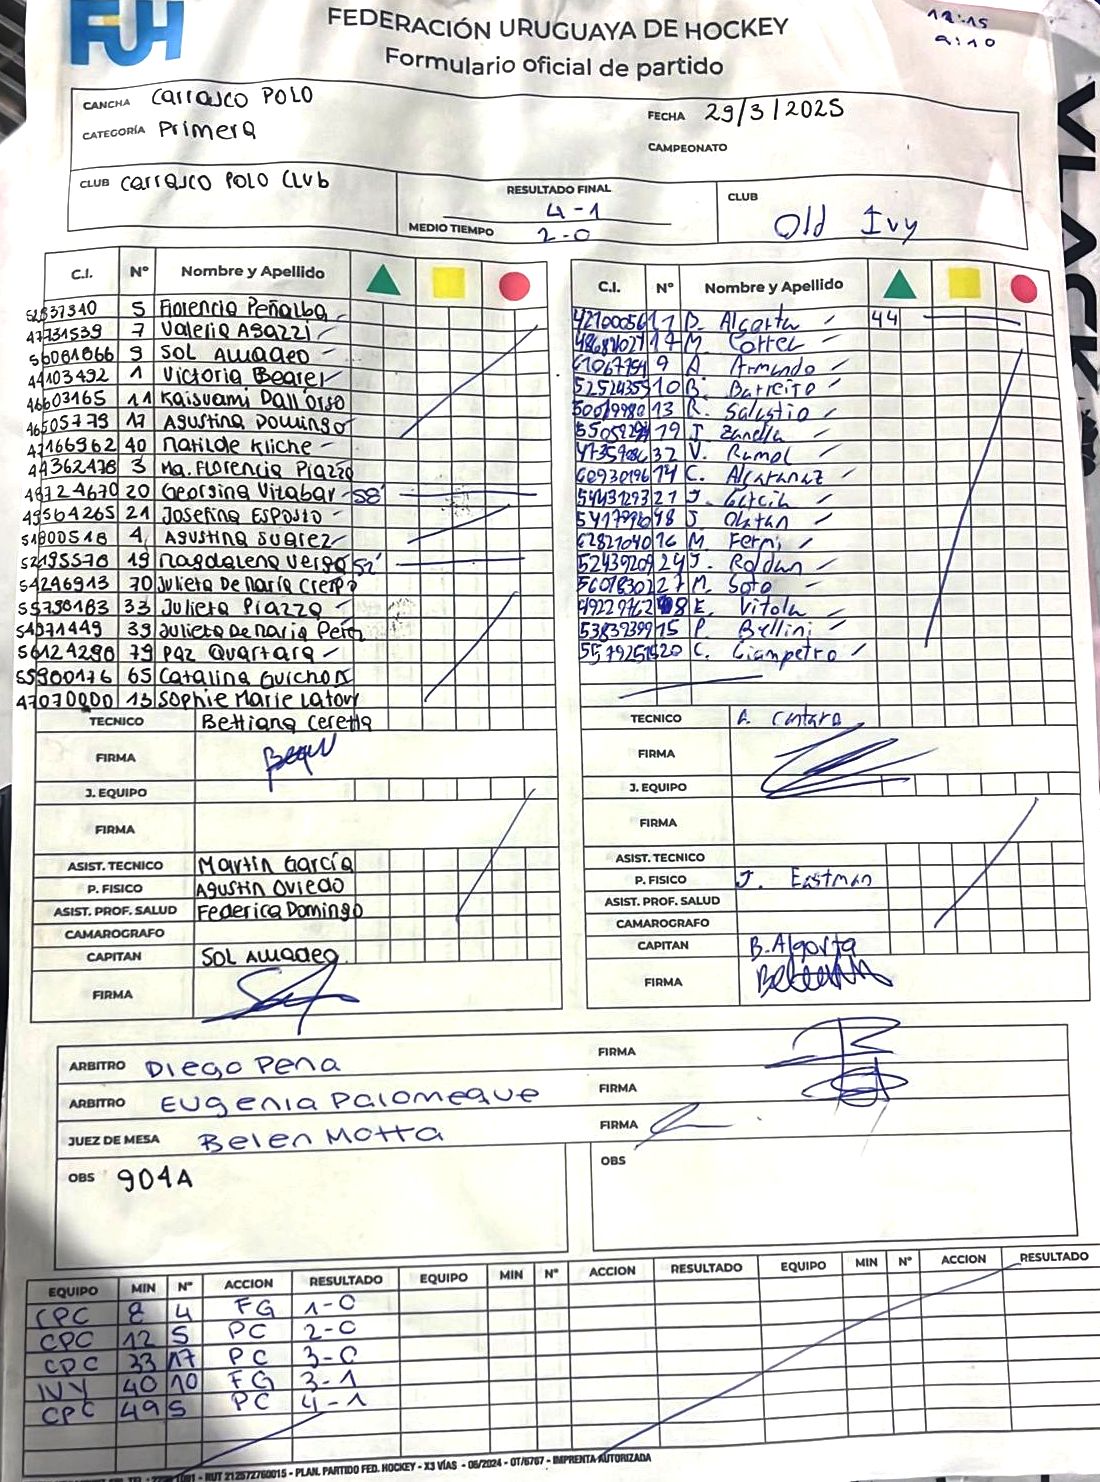 FUH
FEDERACIÓN URUGUAYA DE HOCKEY
Formulario oficial de partido
12:15
9:10
VLACK
CANCHA Carrasco POLO
FECHA 29/3/2025
CATEGORÍA Primera
CAMPEONATO
CLUB Carrasco POLO Club
RESULTADO FINAL
4-1
MEDIO TIEMPO 2-0
CLUB
Old Ivy
C.I. Nº Nombre y Apellido
5 Florencia Peñalba
47731539 7 Valeria Agazzi
56081066 9 SOL Amadeo
44103492 1 Victoria Bearer
46603165 11 Kaisuami Dall'orso
46505779 17 Agustina Domingo
47166962 40 Matilde Kliche
44362478 3 Ma. Florencia Piazza
48724670 20 Georgina Vizabar 58'
49564265 21 Josefina Esposto
51800518 4 Agustina Suarez
52195578 19 Magdalena Verga 52'
54246913 70 Julieta De Maria Crespo
55790183 33 Julieta Piazza
54971449 39 Julieta De Maria
56124290 79 Paz Quartara
55900176 65 Catalina Guichon
47070000 13 Sophie Marie Latowy
TECNICO Bettiana Ceretta
FIRMA
J. EQUIPO
FIRMA
ASIST. TECNICO Martin García
P. FISICO Agustin Oviedo
ASIST. PROF. SALUD Federica Domingo
CAMAROGRAFO
CAPITAN SOL Amadeo
FIRMA
C.I. Nº Nombre y Apellido
B. Algorta 44
17 M. Correa
9 A. Armando
10 B. Barreito
13 R. Salustio
19 J. Zanella
32 V. Ramol
14 C. Alcaranaz
21 J. Garcia
J. Olatan
16 M. Ferni
24 J. Roldan
27 M. Soto
E. Vitola
15 P. Bellini
20 C. Giampetro
TECNICO A. Cantara
FIRMA
J. EQUIPO
FIRMA
ASIST. TECNICO
P. FISICO J. Eastman
ASIST. PROF. SALUD
CAMAROGRAFO
CAPITAN B. Algorta
FIRMA
ARBITRO Diego Pena FIRMA
ARBITRO Eugenia Palomeque FIRMA
JUEZ DE MESA Belen Motta FIRMA
OBS 904A
OBS
EQUIPO MIN Nº ACCION RESULTADO EQUIPO MIN Nº ACCION RESULTADO EQUIPO MIN Nº ACCION RESULTADO
CPC 8 4 FG 1-0
CPC 12 5 PC 2-0
CPC 33 17 PC 3-0
IVY 40 10 FG 3-1
CPC 49 5 PC 4-1
RUT 212572760015 - PLAN. PARTIDO FED. HOCKEY - X3 VÍAS - 06/2024 - OT/6767 - IMPRENTA AUTORIZADA